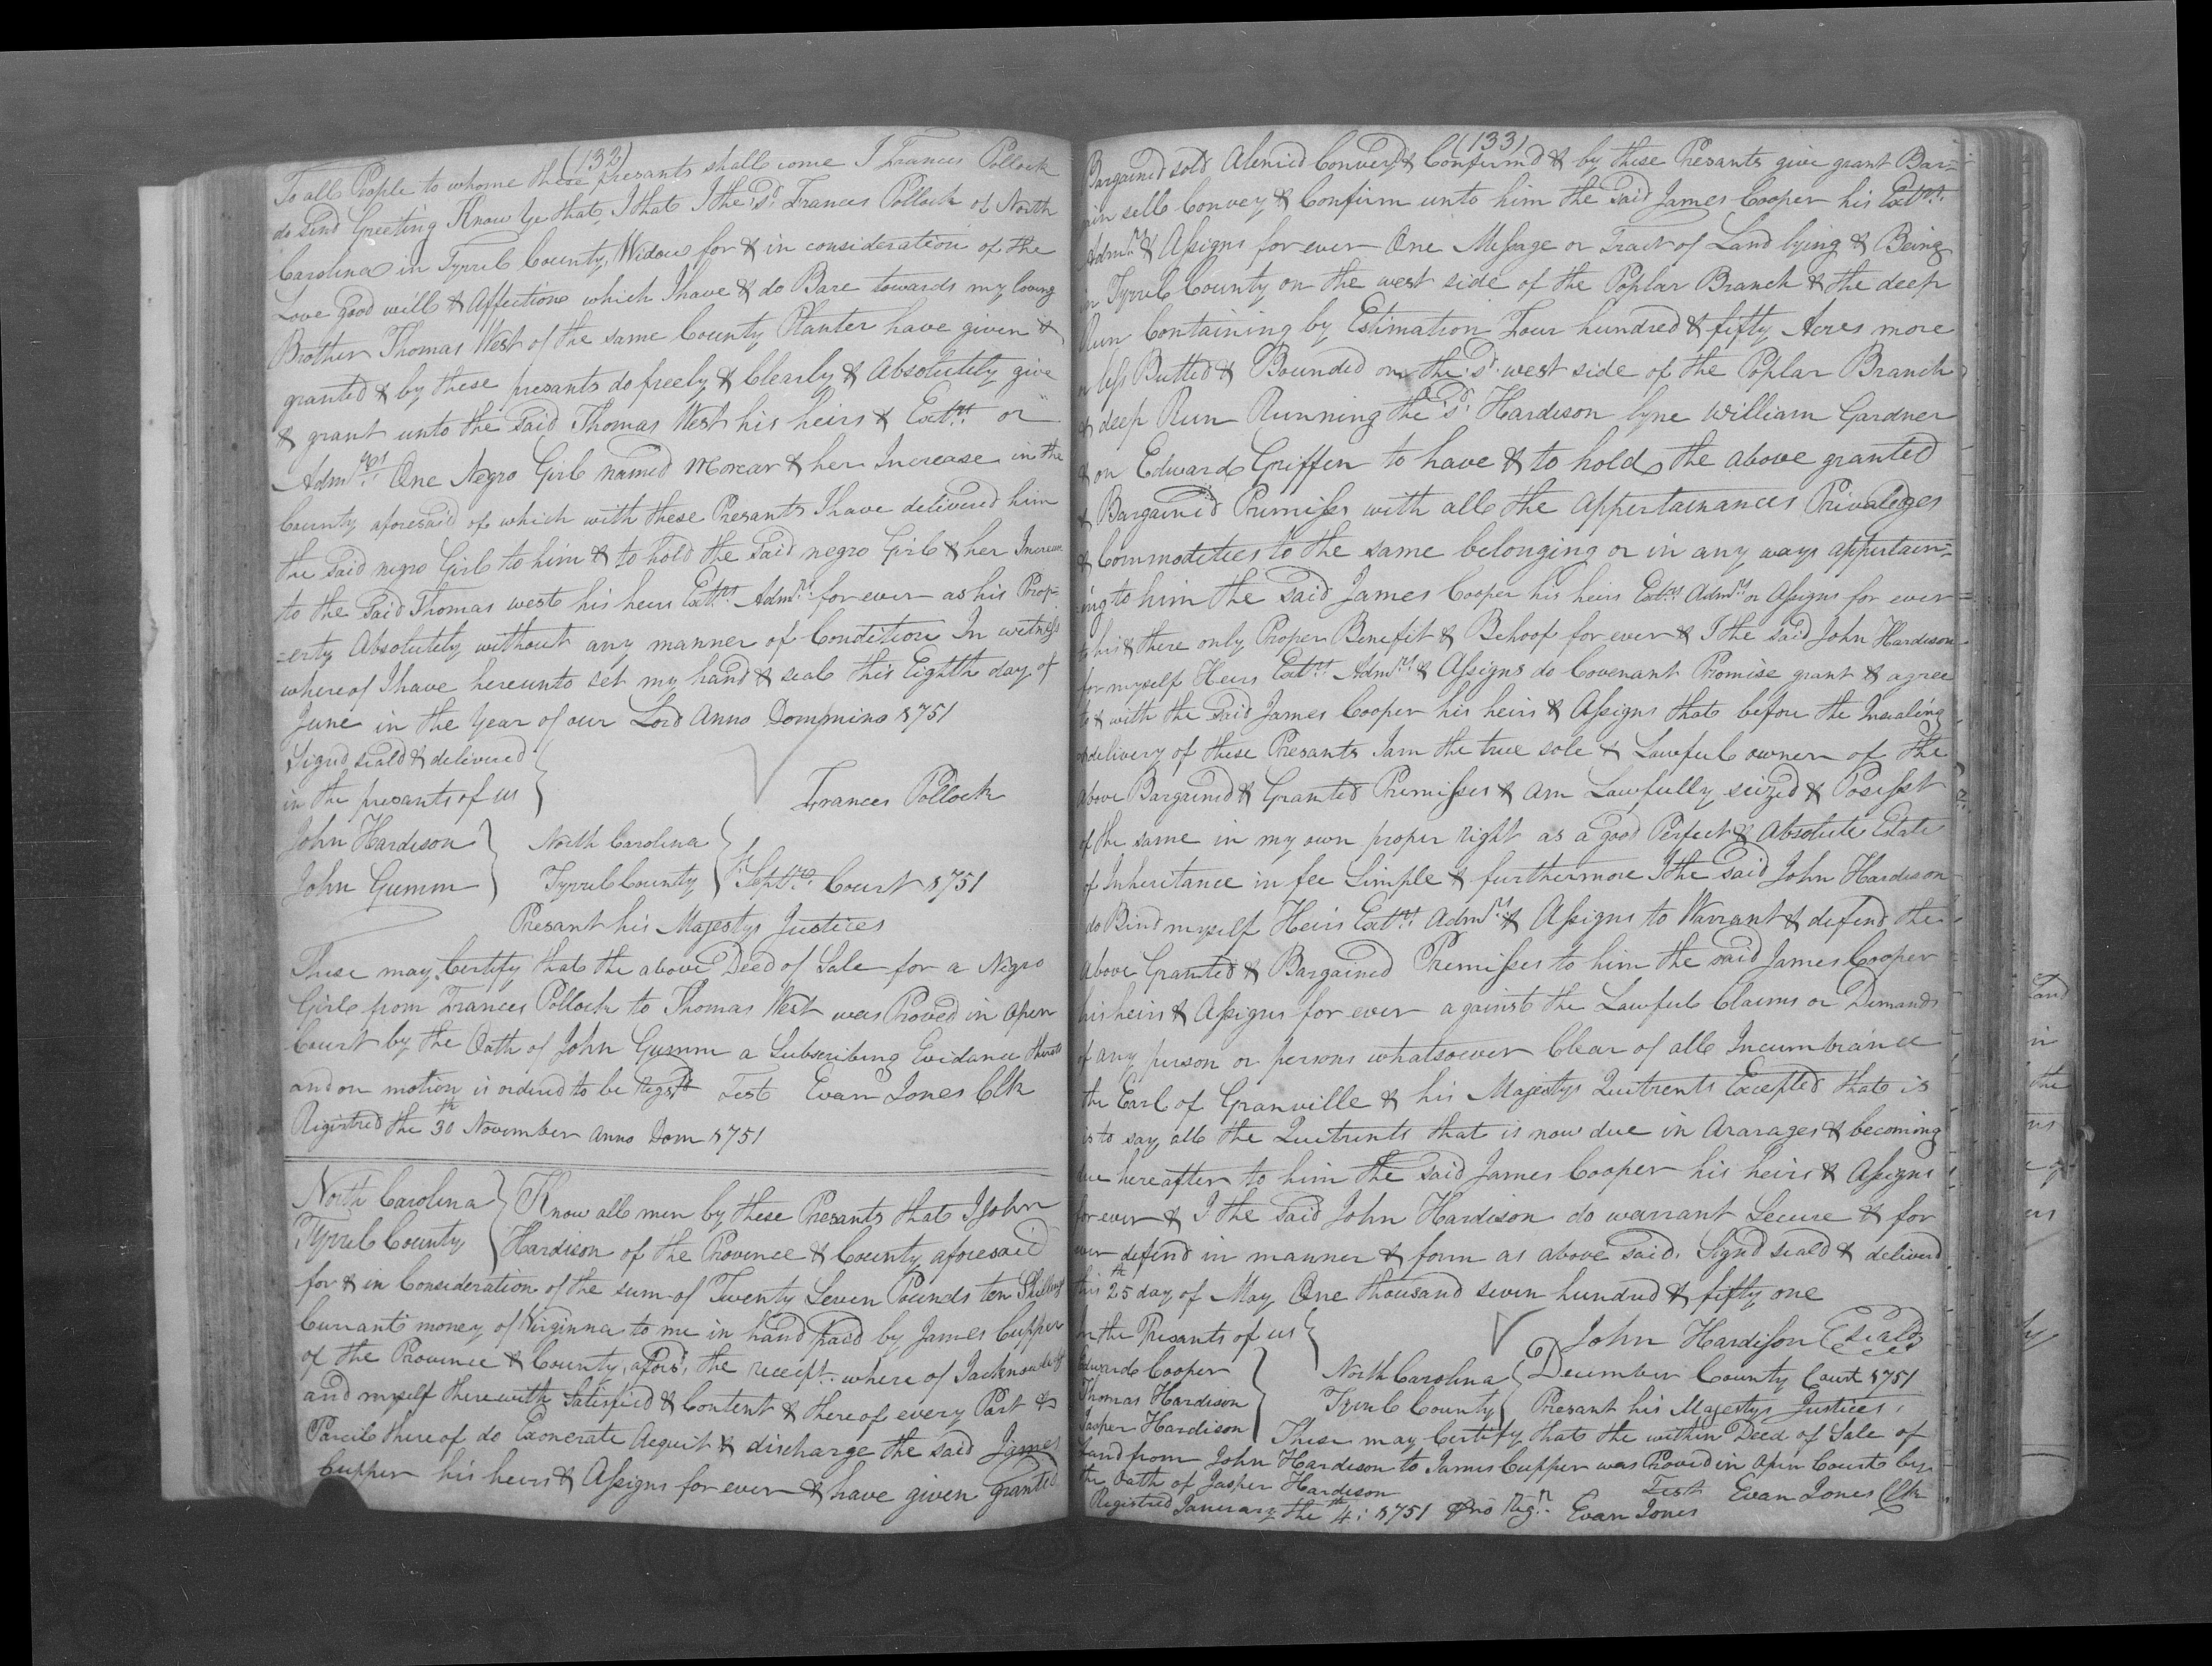 (132)
To all People to whome these presants shall come I Frances Pollock
do Send Greeting Know Ye that I that I the sd. Frances Pollock of North
Carolina in Tyrrel County, Widow for & in consideration of the
Love good will & Affection which I have & do Bare towards my loving
Brother Thomas West of the same County Planter have given &
granted & by these presants do freely & Clearly & Absolutely give
& grant unto the said Thomas West his heirs & Exetrs or
Admrs One Negro Girl named & her Increase in the
County aforesaid of which with these Presants I have delivered him
the said negro Girl to him & to hold the said negro Girl & her Increase
to the said Thomas west his heirs Extrs Admrs for ever as his Prop-
=erty Absolutely without any manner of Condition In witness
whereof I have hereunto set my hand & seal this Eighth day of
June in the Year of our Lord Anno Dommino 1751
Signd seald & delivered
in the presants of us
Frances Pollock
John Hardison
John Gumm
North Carolina
Tyrrel County
Sst Septro Court 1751
Presant his Majestys Justices
These may Certify that the above Deed of Sale for a Negro
Girl from Frances Pollock to Thomas West was Proved in open
Court by the Oath of John Gumm a Subscribing Evidance thereto
and on motion is ordred to be Regstd Test Evan Jones Clk
Registred the 30th November Anno Dom 1751
North Carolina
Tyrrel County
Know all men by these Presants that I John
Hardison of the Province & County aforesaid
for & in Consideration of the sum of Twenty Seven Pounds ten Shillings
Currant money of Virginna to me in hand paid by James Cupper
of the Province & County aforsd. the receipt where of I acknowledge
and myself therewith Satisfied & Content & thereof every Part &
Parcil thereof do Exonerate Acquit & discharge the said James
Cupper his heirs & Assigns for ever & have given granted
(133)
Bargained sold Alenied Conveyd & Confirmd & by these Presants give grant Bar=
ain sell Convey & Confirm unto him the said James Cooper his Extrs.
Admrs & Assigns for ever One Message or Tract of Land lying & Being
in Tyrrel County on the west side of the Poplar Branch & the deep
Run Containing by Estimation Four hundred & fifty Acres more
or less Butted & Bounded on the sd. west side of the Poplar Branch
& deep Run Running the sd. Hardison lyne William Gardner
& on Edward Griffen to have & to hold the above granted
& Bargained Premisses with all the Appertainances Privaledges
& Commodities to the same belonging or in any ways appertain=
=ing to him the said James Cooper his heirs Extrs Admrs or Assigns for ever
to his & there only Proper Benefit & Behoof for ever & I the said John Hardison
for myself Heirs Extrs Admrs & Assigns do Covenant Promise grant & agree
to & with the said James Cooper his heirs & Assigns that before the Insealing
& delivery of these Presants I am the true sole & Lawful owner of the
Above Bargained & Granted Premisses & am Lawfully seized & Posesst
of the same in my own proper right as a good Perfect & Absolute Estate
of Inheritance in fee Simple & furthermore I the said John Hardison
do Bind myself Heirs Extrs Admrs & Assigns to Warrant & defend the
Above Granted & Bargained Premisses to him the said James Cooper
his heirs & Assigns for ever against the Lawful Claims or Demands
of any person or persons whatsoever Clear of all Incumbrance
the Earl of Granville & his Majestys Quitrents Excepted that is
is to say all the Quitrents that is now due in Ararages & becoming
due hereafter to him the said James Cooper his heirs & Assigns
for ever & I the said John Hardison do warrant Secure & for
ever defend in manner & form as above said. Signd seald & deliverd
this 25th day of May One thousand seven hundred & fifty one
In the Presants of us
John Hardison Seald
Edward Cooper
Thomas Hardison
Jasper Hardison
North Carolina
Tyrrel County
December County Court 1751
Presant his Majestys Justices
These may Certify that the within Deed of Sale of
Land from John Hardison to James Cupper was Proved in open Court by
the Oath of Jasper Hardison
Test Evan Jones Clk
Registred January the 4th: 1751 Regr. Evan Jones
Land
in
the